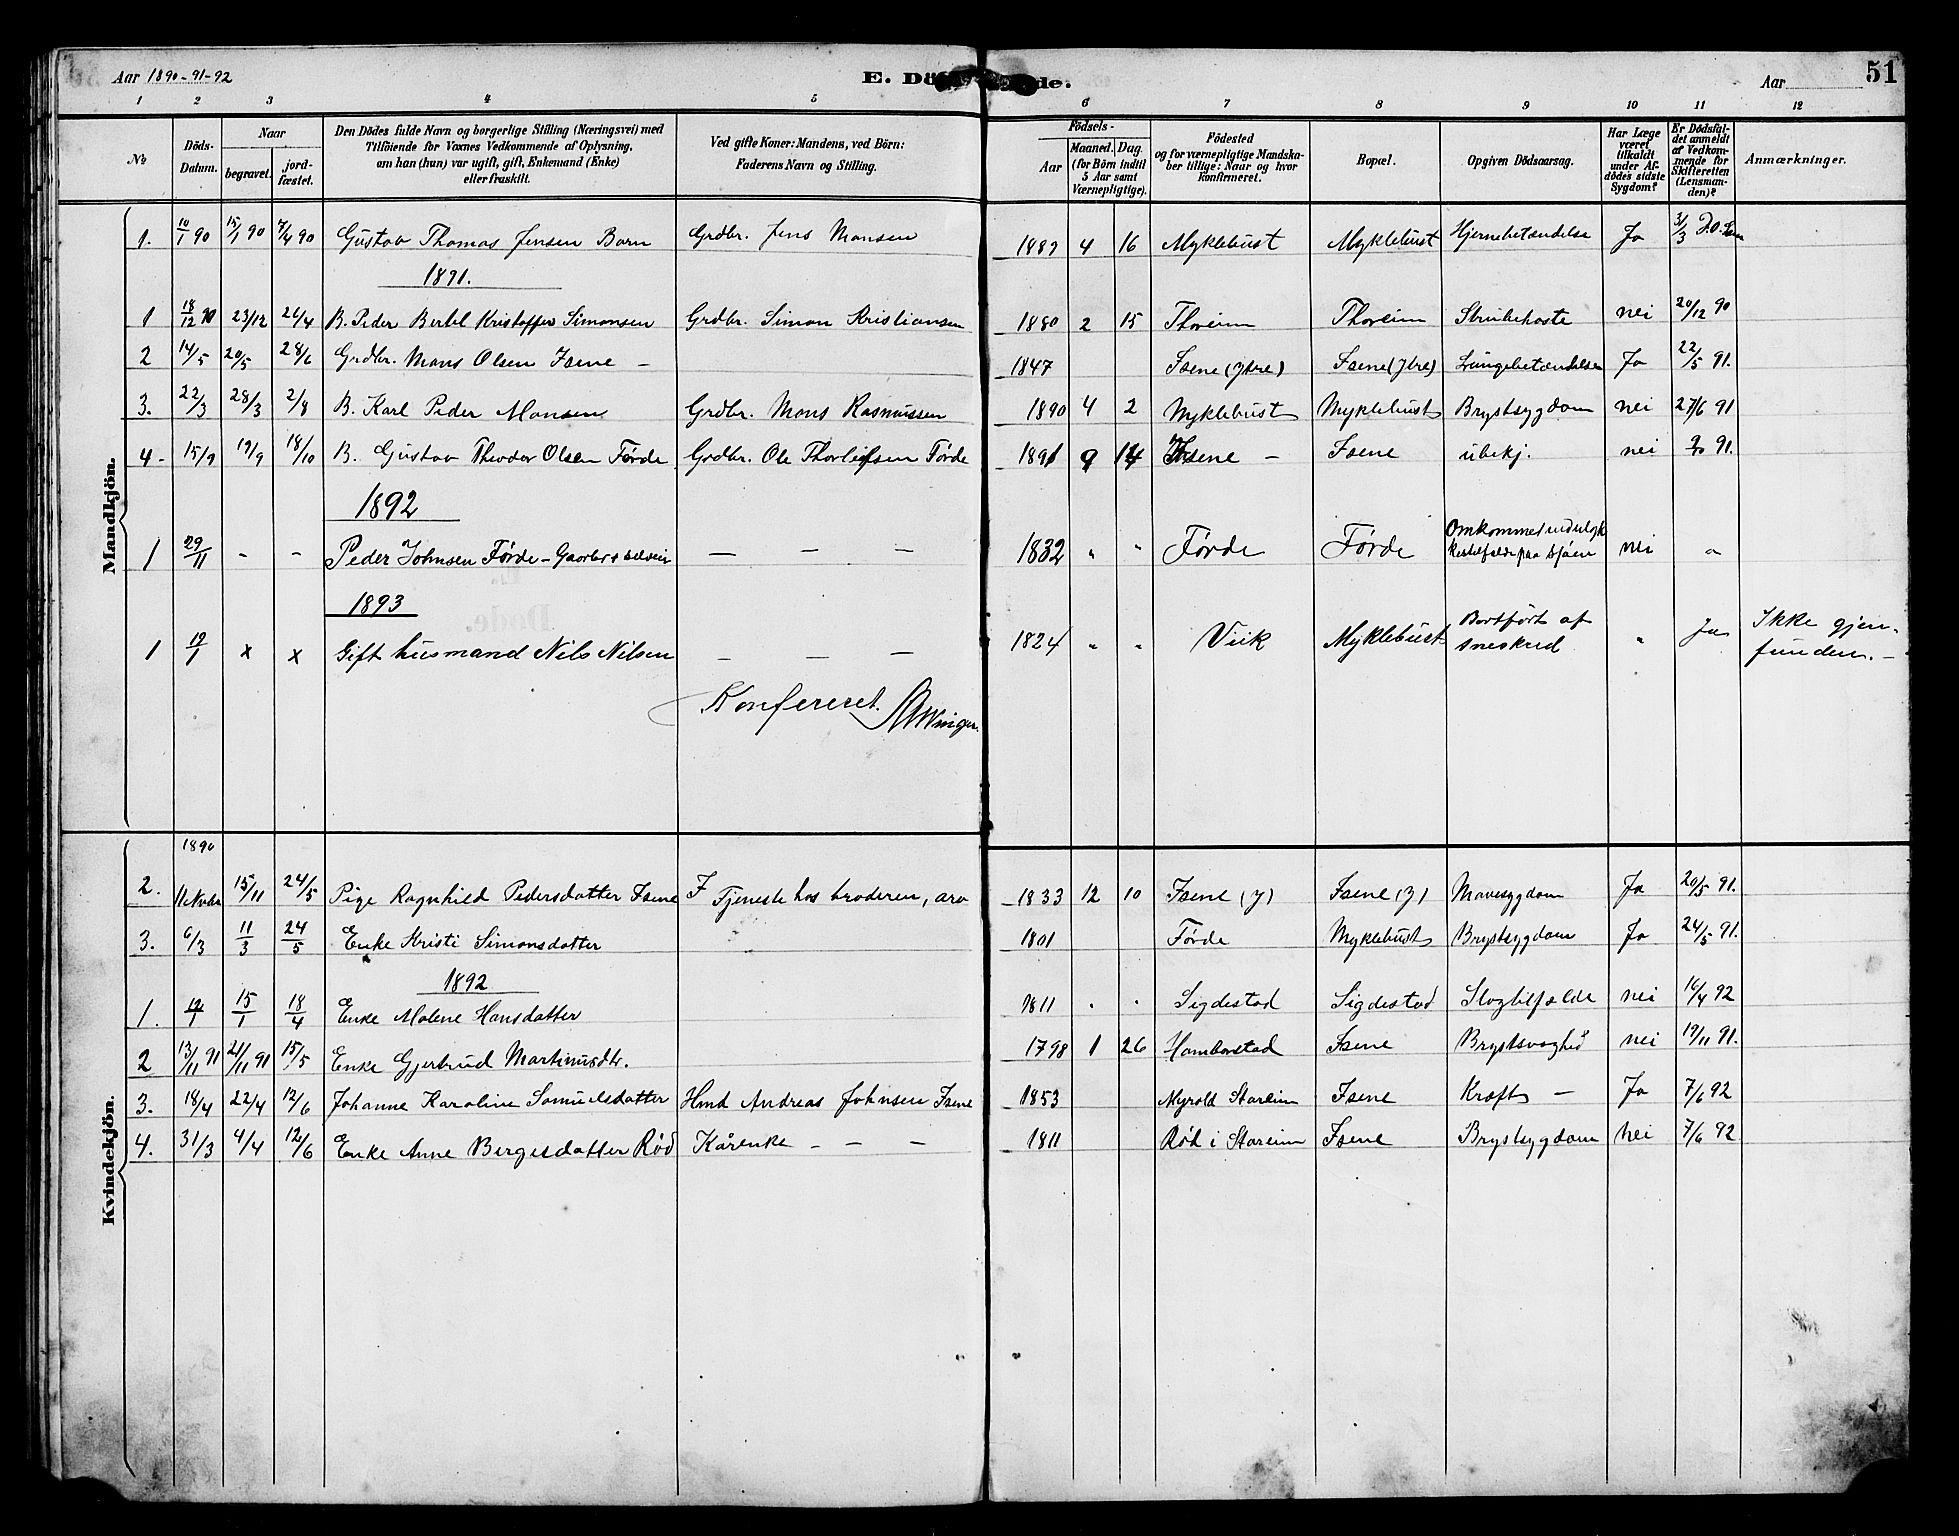 Aar 1890-91-92 E. Dö de. Aar 51
1 2 3 4 5 6 7 8 9 10 11 12
No Döds-Datum. Naar begravet. jordfæstet. Den Dödes fulde Navn og borgerlige Stilling (Næringsvei) med Tilföiende for Voxnes Vedkommende af Oplysning, om han (hun) var ugift, gift, Enkemand (Enke) eller fraskilt. Ved gifte Koner: Mandens, ved Börn: Faderens Navn og Stilling. Födsels- Aar Maaned. Dag. (for Börn indtil 5 Aar samt Værnepligtige). Födested og for værnepligtige Mandskaber tillige: Naar og hvor konfirmeret. Bopæl. Opgiven Dödsaarsag. Har Læge været tilkaldt under Afdödes sidste Sygdom? Er Dödsfaldet anmeldt af Vedkommende for Skifteretten (Lensmanden)? Anmærkninger.
Mandkjön.
1. 10/1 90 15/1 90 7/4 90 Gustav Thomas Jensen Barn Grdbr. Jens Monsen 1889 4 16 Myklebust Myklebust Hjernebetændelse Ja 3/3
1891.
1 18/12 90 23/12 26/4 B. Peder Bertel Kristoffer Simonsen Grdbr. Simon Kristiansen 1880 2 15 Thoreim Thoreim Strubehoste nei 20/12 90
2 14/5 20/5 28/6 Grdbr. Mons Olsen Isene – 1847 Isene (Ytre) Isene (Ytre) Lungebetændelse Ja 22/5 91.
3. 22/3 28/3 2/8 B. Karl Peder Monsen Grdbr. Mons Rasmussen 1890 4 2 Myklebust Myklebust Brystsygdom nei 27/6 91
4- 15/9 19/9 18/10 B. Gustav Theodor Olsen Förde Grdbr. Ole Thorleifsen Förde 1891 9 14 Isene – Isene ubekj. nei 91.
1892
1 29/11 - - Peder Johnsen Förde – — — — 1832 " " Förde Förde Omkommet ved ulykkestilfælde paa Sjöen nei "
1893
1 12/1 x x Gift husmand Nils Nilsen — — — 1824 " " Viik Myklebust Bortfört af sneskred " Ja Ikke gjenfunden. –
Konfereret.
Kvindekjön.
1890
2. 11 Novbr 15/11 24/5 Pige Ragnhild Pedersdatter Isene I Tjeneste hos broderen, 1833 12 10 Isene (Y) Isene (Y) Mavesygdom Ja 20/5 91.
3. 6/3 11/3 24/5 Enke Kristi Simonsdatter 1801 Förde Myklebust Brystsygdom Ja 24/5 91.
1892
1. 12/1 15/1 18/4 Enke Malene Hansdatter 1811 " " Sigdestad Sigdestad Slagtilfælde nei 16/4 92
2 13/11 91 21/11 91 15/5 Enke Gjertrud Martinusdtr. 1798 1 26 Hamborstad Isene Brystsvaghed nei 19/11 91.
3. 18/4 22/4 12/6 Johanne Karoline Samuelsdatter Hmd Andreas Johnsen Isene 1853 Myrold Stareim Isene Kræft – Ja 7/6 92
4. 31/3 4/4 12/6 Enke Anne Bergesdatter Röd Kårenke – – – 1811 Röd i Stareim Isene Brystsygdom nei 7/6 92